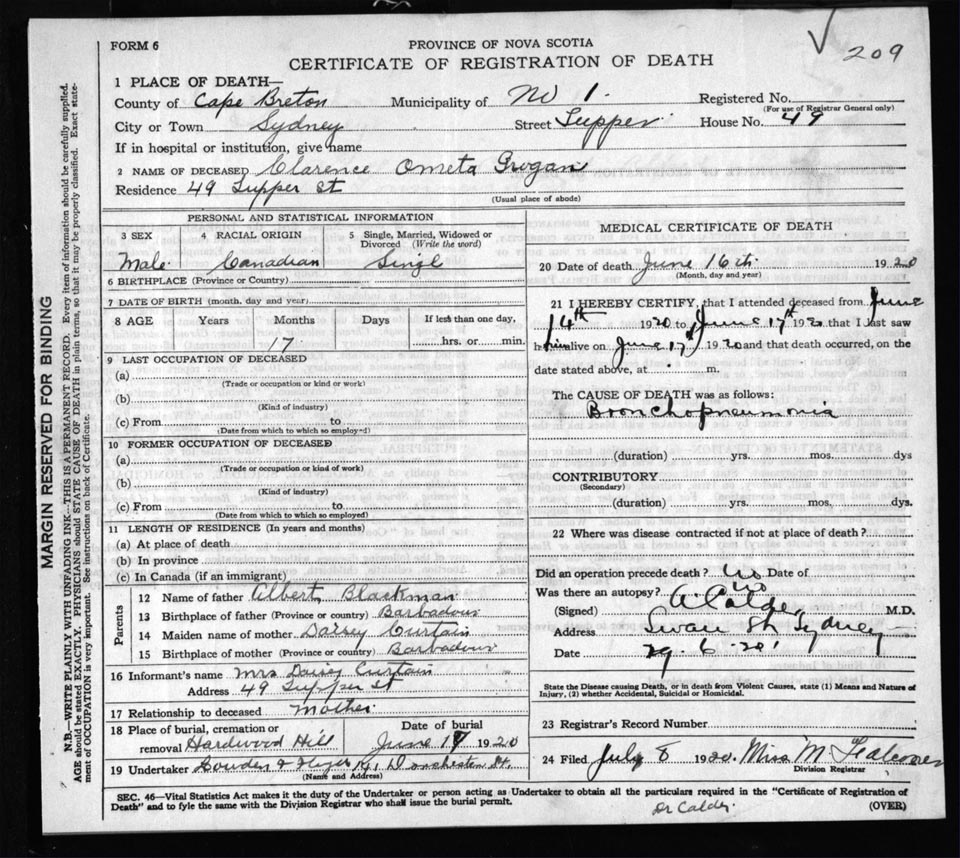 209
FORM 6
PROVINCE OF NOVA SCOTIA
CERTIFICATE OF REGISTRATION OF DEATH
1 PLACE OF DEATH—
County of Cape Breton Municipality of No 1. Registered No.
(For use of Registrar General only)
City or Town Sydney Street Tupper House No. 49
If in hospital or institution, give name
2 NAME OF DECEASED Clarence Ometa Grogan
Residence 49 Tupper St
(Usual place of abode)
PERSONAL AND STATISTICAL INFORMATION
3 SEX 4 RACIAL ORIGIN 5 Single, Married, Widowed or Divorced (Write the word)
Male Canadian Singl
6 BIRTHPLACE (Province or Country)
7 DATE OF BIRTH (month, day and year)
8 AGE Years Months Days If less than one day,
17 hrs. or min.
9 LAST OCCUPATION OF DECEASED
(a)
(Trade or occupation or kind or work)
(b)
(Kind of industry)
(c) From to
(Date from which to which so employed)
10 FORMER OCCUPATION OF DECEASED
(a)
(Trade or occupation or kind of work)
(b)
(Kind of industry)
(c) From to
(Date from which to which so employed)
11 LENGTH OF RESIDENCE (In years and months)
(a) At place of death
(b) In province
(c) In Canada (if an immigrant)
Parents
12 Name of father Albert Blackman
13 Birthplace of father (Province or country) Barbadous
14 Maiden name of mother Daisey Curtain
15 Birthplace of mother (Province or country) Barbadous
16 Informant's name Mrs Daisy Curtain
Address 49 Tupper St
17 Relationship to deceased Mother
18 Place of burial, cremation or removal Hardwood Hill
Date of burial
June 17 1920
19 Undertaker Dorchester St.
(Name and Address)
MEDICAL CERTIFICATE OF DEATH
20 Date of death June 16th 1920
(Month, day and year)
21 I HEREBY CERTIFY, that I attended deceased from June
14th 1920 to June 17th 1920 that I last saw
him alive on June 17th 1920 and that death occurred, on the
date stated above, at m.
The CAUSE OF DEATH was as follows:
Bronchopneumonia
(duration) yrs. mos. dys
CONTRIBUTORY
(Secondary)
(duration) yrs. mos. dys.
22 Where was disease contracted if not at place of death?
Did an operation precede death? no Date of
Was there an autopsy? no
(Signed) A Calder M.D.
Address Swan St Sydney
Date 29.6.20
State the Disease causing Death, or in death from Violent Causes, state (1) Means and Nature of
Injury, (2) whether Accidental, Suicidal or Homicidal.
23 Registrar's Record Number
24 Filed July 8 1920. Miss M Falconer
Division Registrar
SEC. 46—Vital Statistics Act makes it the duty of the Undertaker or person acting as Undertaker to obtain all the particulars required in the "Certificate of Registration of
Death" and to fyle the same with the Division Registrar who shall issue the burial permit.
Dr Calder
(OVER)
MARGIN RESERVED FOR BINDING
N.B.—WRITE PLAINLY WITH UNFADING INK—THIS IS A PERMANENT RECORD. Every item of information should be carefully supplied.
AGE should be stated EXACTLY. PHYSICIANS should STATE CAUSE OF DEATH in plain terms, so that it may be properly classified. Exact state-
ment of OCCUPATION is very important. See instructions on back of Certificate.